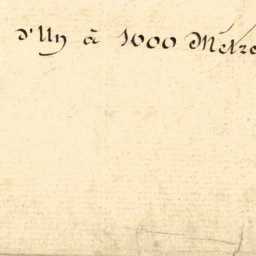 d'Un à 1000 Mètre